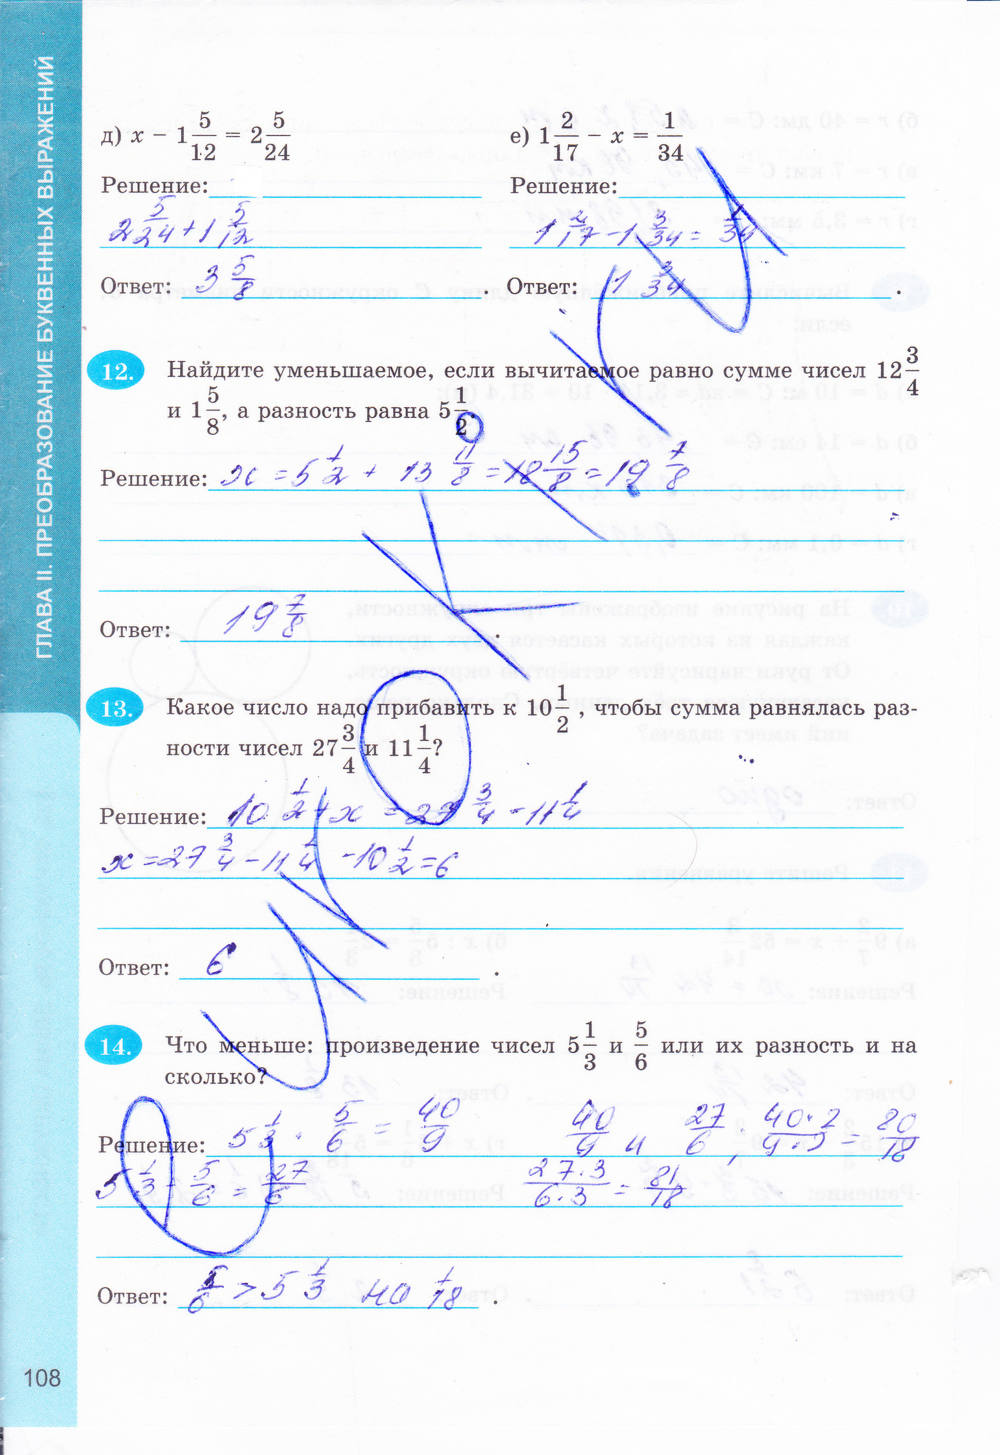 ГЛАВА II. ПРЕОБРАЗОВАНИЕ БУКВЕННЫХ ВЫРАЖЕНИЙ
д) x − 1 5/12 = 2 5/24
е) 1 2/17 − x = 1/34
Решение:
Решение:
2 5/24 + 1 5/12
1 2/17 − 1 3/34 = 1/34
Ответ: 3 5/8.
Ответ: 1 3/34.
12. Найдите уменьшаемое, если вычитаемое равно сумме чисел 12 3/4
и 1 5/8, а разность равна 5 1/2.
Решение: x = 5 1/2 + 13 11/8 = 18 15/8 = 19 7/8
Ответ: 19 7/8.
13. Какое число надо прибавить к 10 1/2, чтобы сумма равнялась раз-
ности чисел 27 3/4 и 11 1/4?
Решение: 10 1/2 + x = 27 3/4 − 11 1/4
x = 27 3/4 − 11 1/4 − 10 1/2 = 6
Ответ: 6.
14. Что меньше: произведение чисел 5 1/3 и 5/6 или их разность и на
сколько?
Решение: 5 1/3 · 5/6 = 40/9   40/9 и 27/6; 40·2/9·2 = 80/18
5 1/3 − 5/6 = 27/6   27·3/6·3 = 81/18
Ответ: 5/6 > 5 1/3 на 1/18.
108